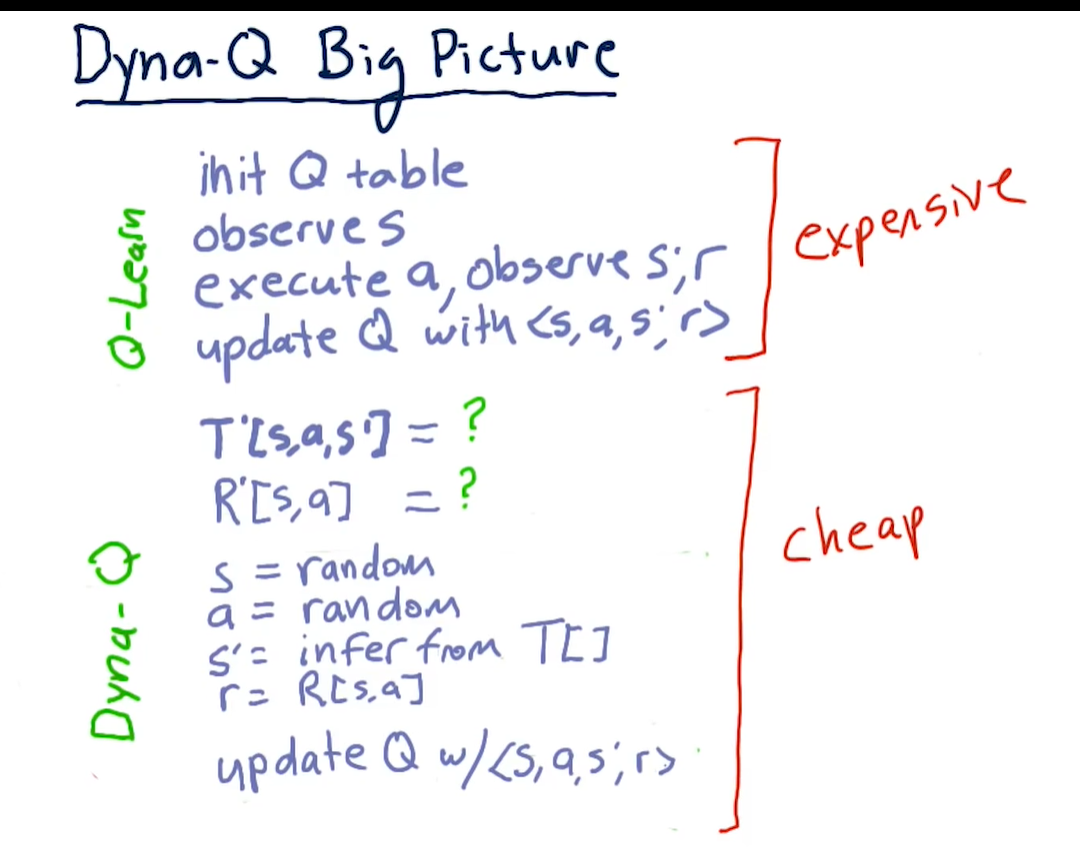 Dyna-Q Big Picture
Q-Learn
init Q table
observe s
execute a, observe s', r
update Q with <s, a, s', r>
expensive
Dyna-Q
T'[s,a,s'] = ?
R'[s,a] = ?
s = random
a = random
s' = infer from T[]
r = R[s,a]
update Q w/<s, a, s', r>
cheap